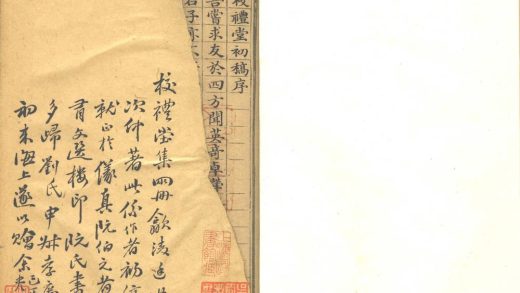 校禮堂初稿序
吾嘗求友於四方聞英奇卓犖
君子亦不
校禮堂集四冊歙凌廷
次仲著此係作者初
就正於儀真阮伯元者
有文選樓印阮氏書
多歸劉氏申叔
初來海上遂以贈余